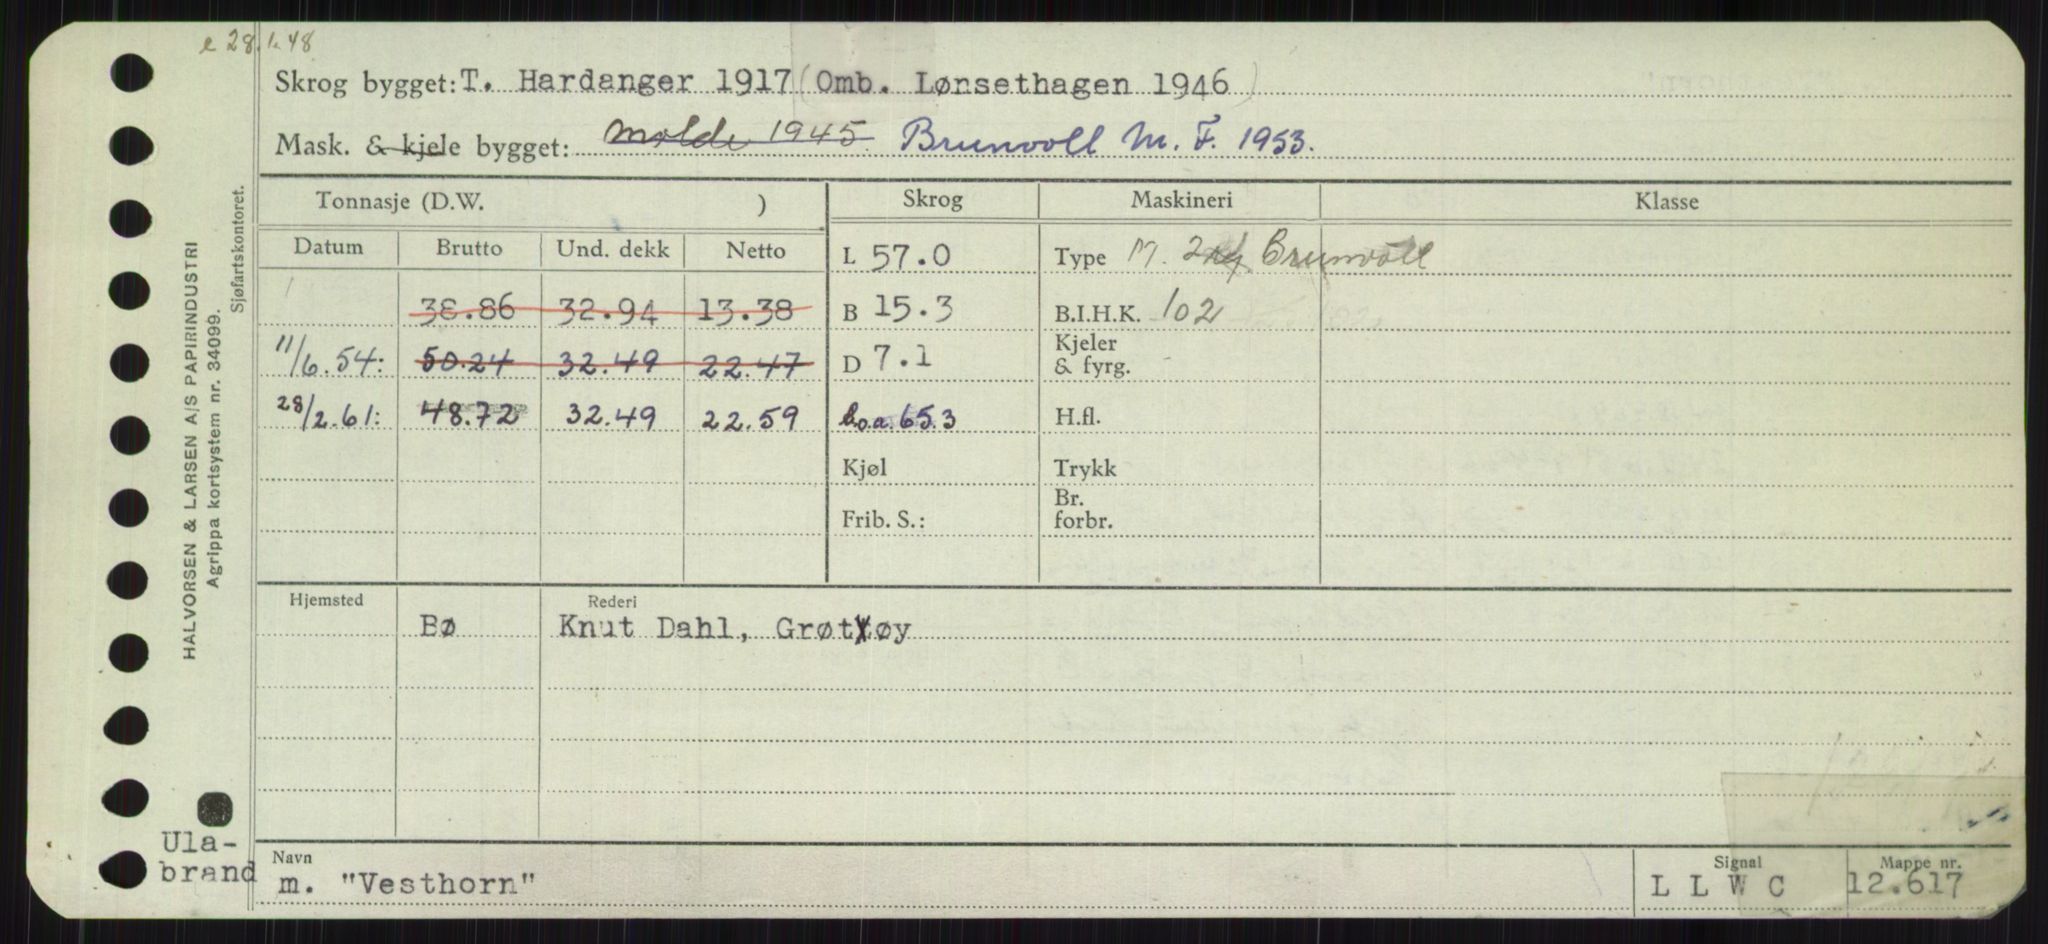 e 28.1.48
Skrog bygget: T. Hardanger 1917 (Omb. Lønsethagen 1946)
Mask. & kjele bygget: Molde 1945. Brunvoll M. F. 1953.
Tonnasje (D.W. ) Skrog Maskineri Klasse
Datum Brutto Und. dekk Netto L 57.0 Type M. Brunvoll
38.86 32.94 13.38 B 15.3 B.I.H.K. 102
11/6.54: 50.24 32.49 22.47 D 7.1 Kjeler & fyrg.
28/2.61: 48.72 32.49 22.59 L.o.a. 65.3 H.fl.
Kjøl Trykk
Frib. S.: Br. forbr.
Hjemsted Rederi
Bø Knut Dahl, Grøtøy
Navn Signal Mappe nr.
m. "Vesthorn" L L W C 12.617
Ula-
brand
HALVORSEN & LARSEN A/S PAPIRINDUSTRI
Agrippa kortsystem nr. 34099.
Sjøfartskontoret.